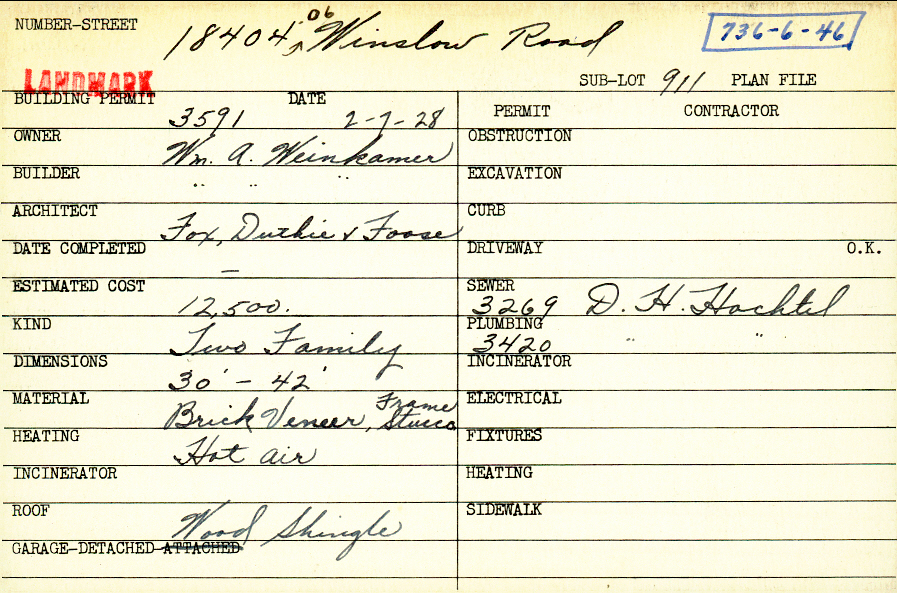 NUMBER-STREET 18404, 06 Winslow Road 736-6-46
LANDMARK SUB-LOT 911 PLAN FILE
BUILDING PERMIT 3591 DATE 2-7-28
PERMIT CONTRACTOR
OWNER Wm. A. Weinkamer
OBSTRUCTION
BUILDER " " "
EXCAVATION
ARCHITECT Fox, Duthie & Foose
CURB
DATE COMPLETED —
DRIVEWAY O.K.
ESTIMATED COST 12,500.
SEWER 3269 D. H. Hachtel
KIND Two Family
PLUMBING 3420 " "
DIMENSIONS 30' - 42'
INCINERATOR
MATERIAL Brick Veneer, Frame Stucco
ELECTRICAL
HEATING Hot air
FIXTURES
INCINERATOR
HEATING
ROOF Wood Shingle
SIDEWALK
GARAGE-DETACHED-ATTACHED